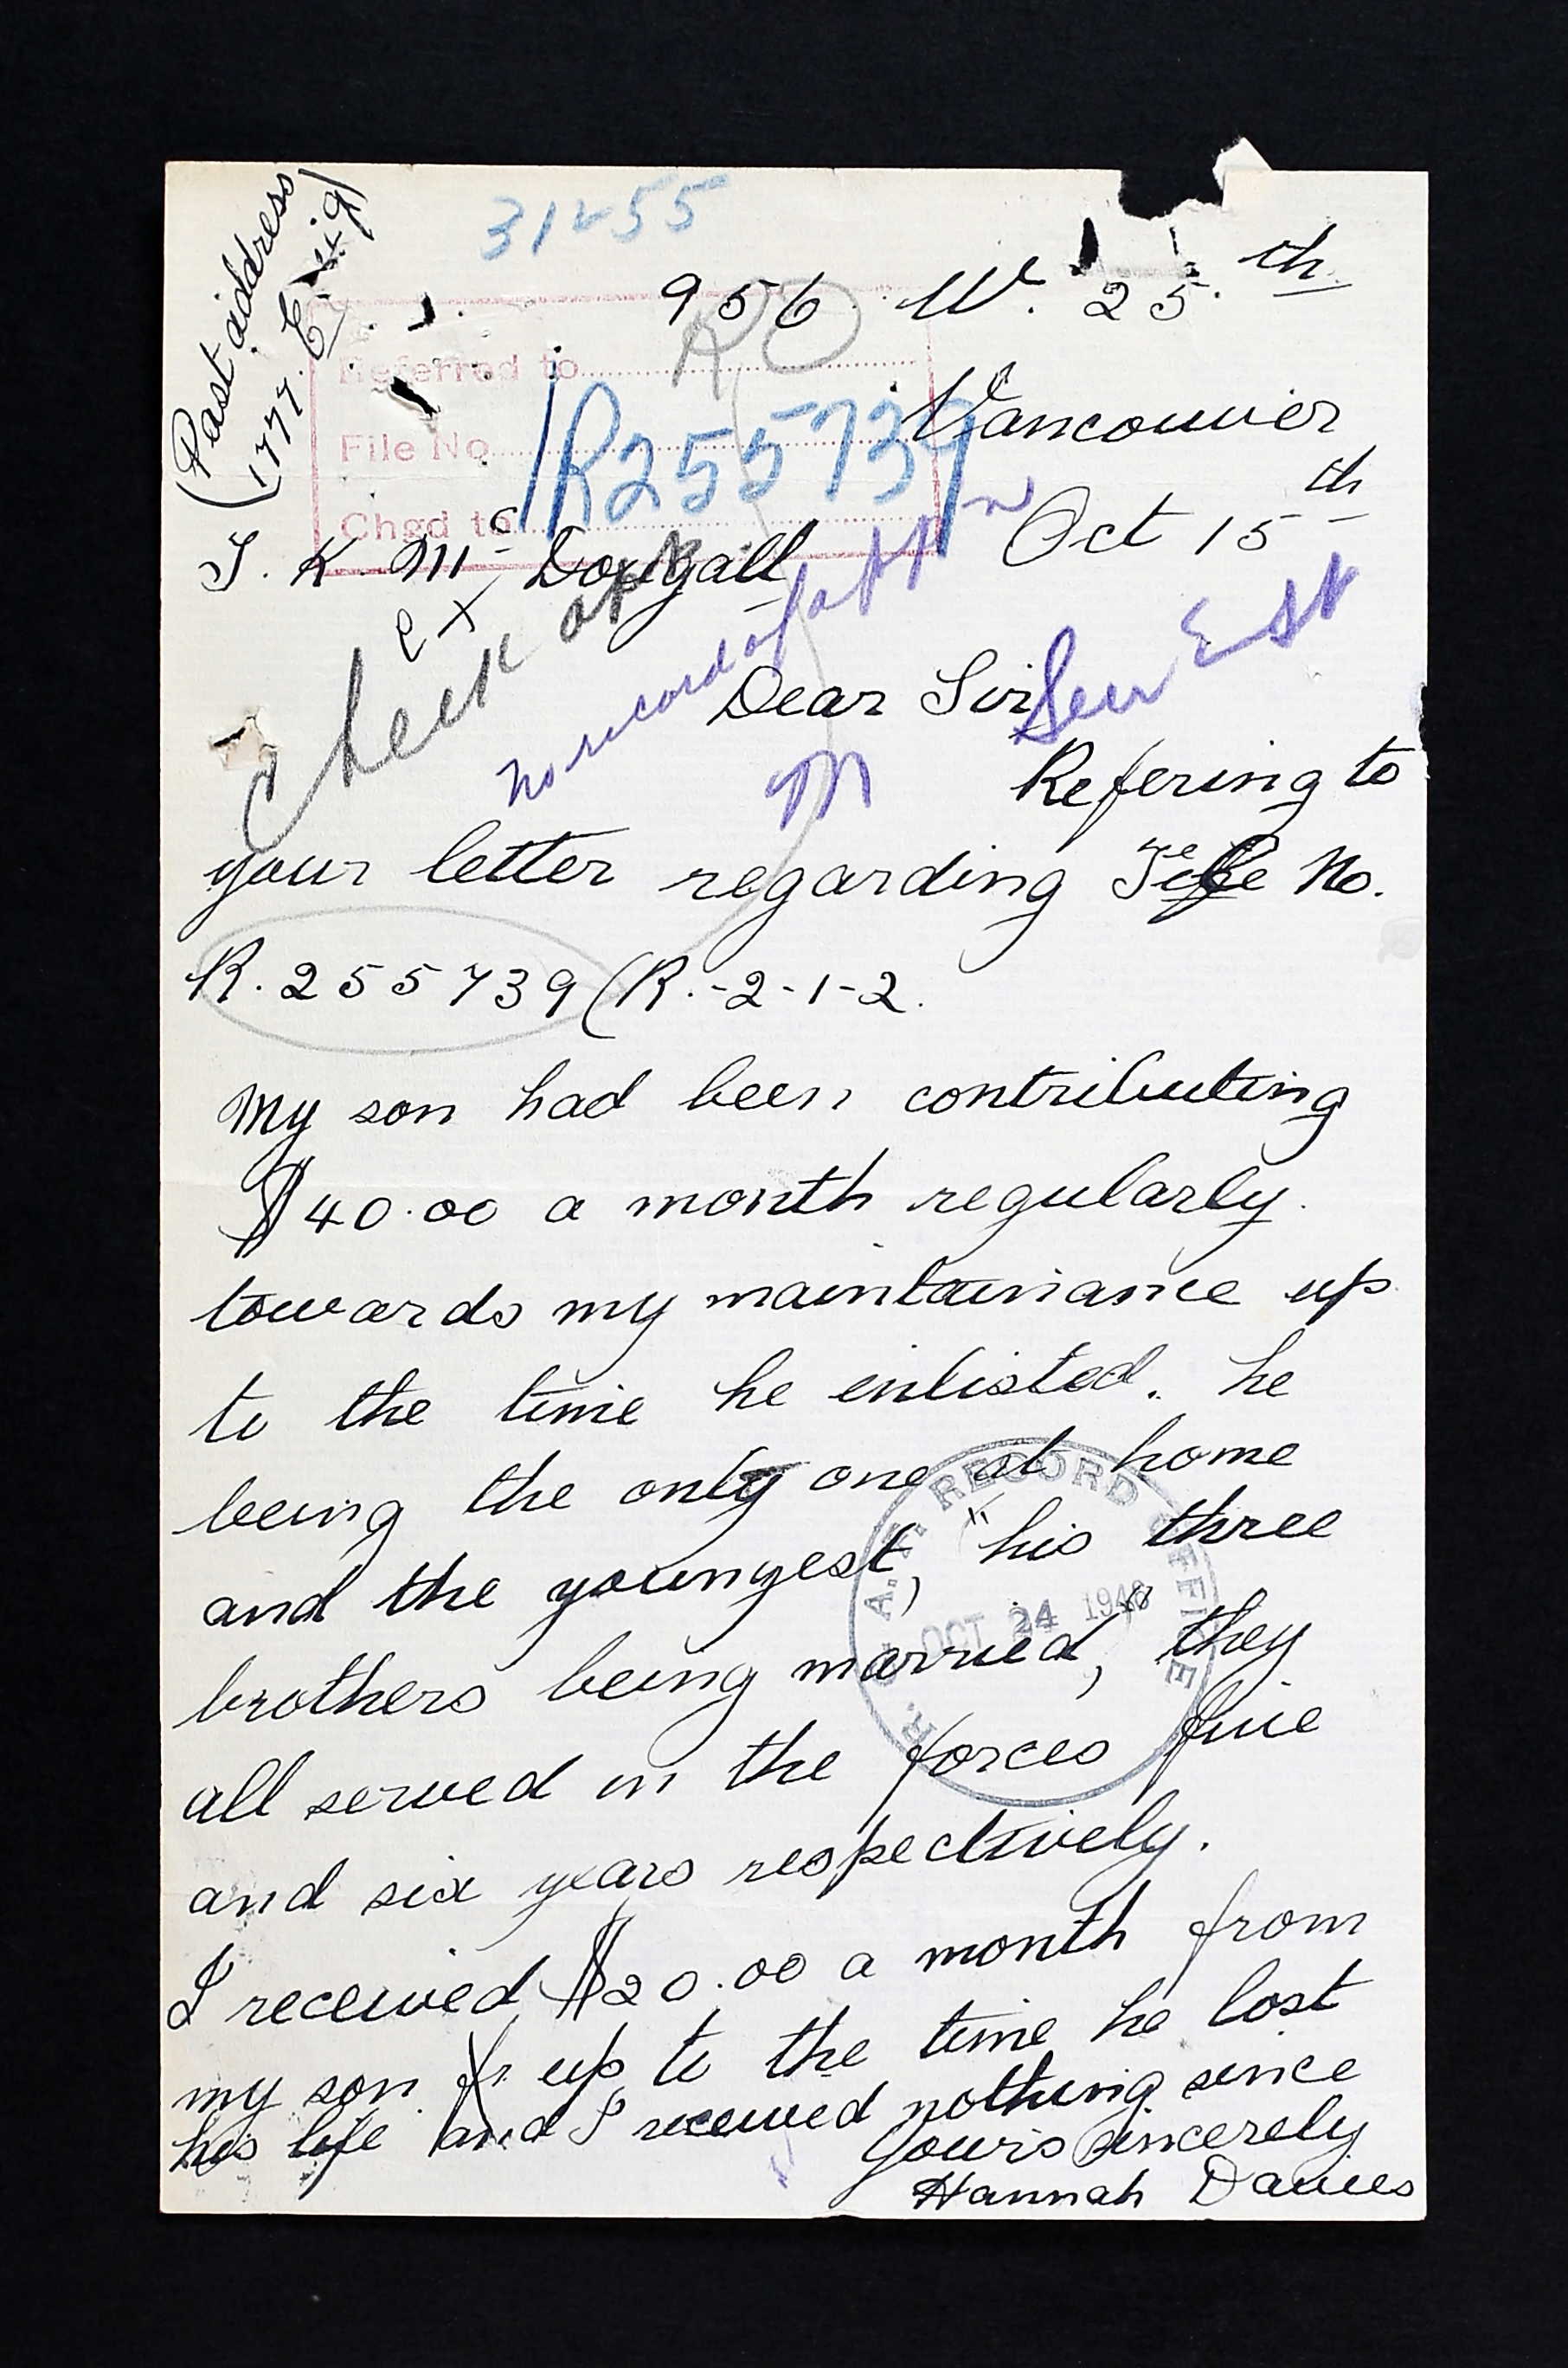 31255
(Past address
(1777. E.
956 W. 25.th
Referred to RO
File No. R255739
Chgd to
Vancouver
Oct 15th
T. K. McDougall
ex
Check
No record of app'n
Dear Sir
Serv Est
M
Refering to
your letter regarding File No.
R. 255739 (R.-2-1-2.
My son had been contributing
$40.00 a month regularly.
towards my maintainance up
to the time he enlisted. he
being the only one at home
and the youngest, "his three
brothers being married," they
all served in the forces five
and six years respectively.
R.C.A.F. RECORD OFFICE
OCT 24 1946
I received $20.00 a month from
my son fr up to the time he lost
his life and I received nothing since
Yours Sincerely
Hannah Davies